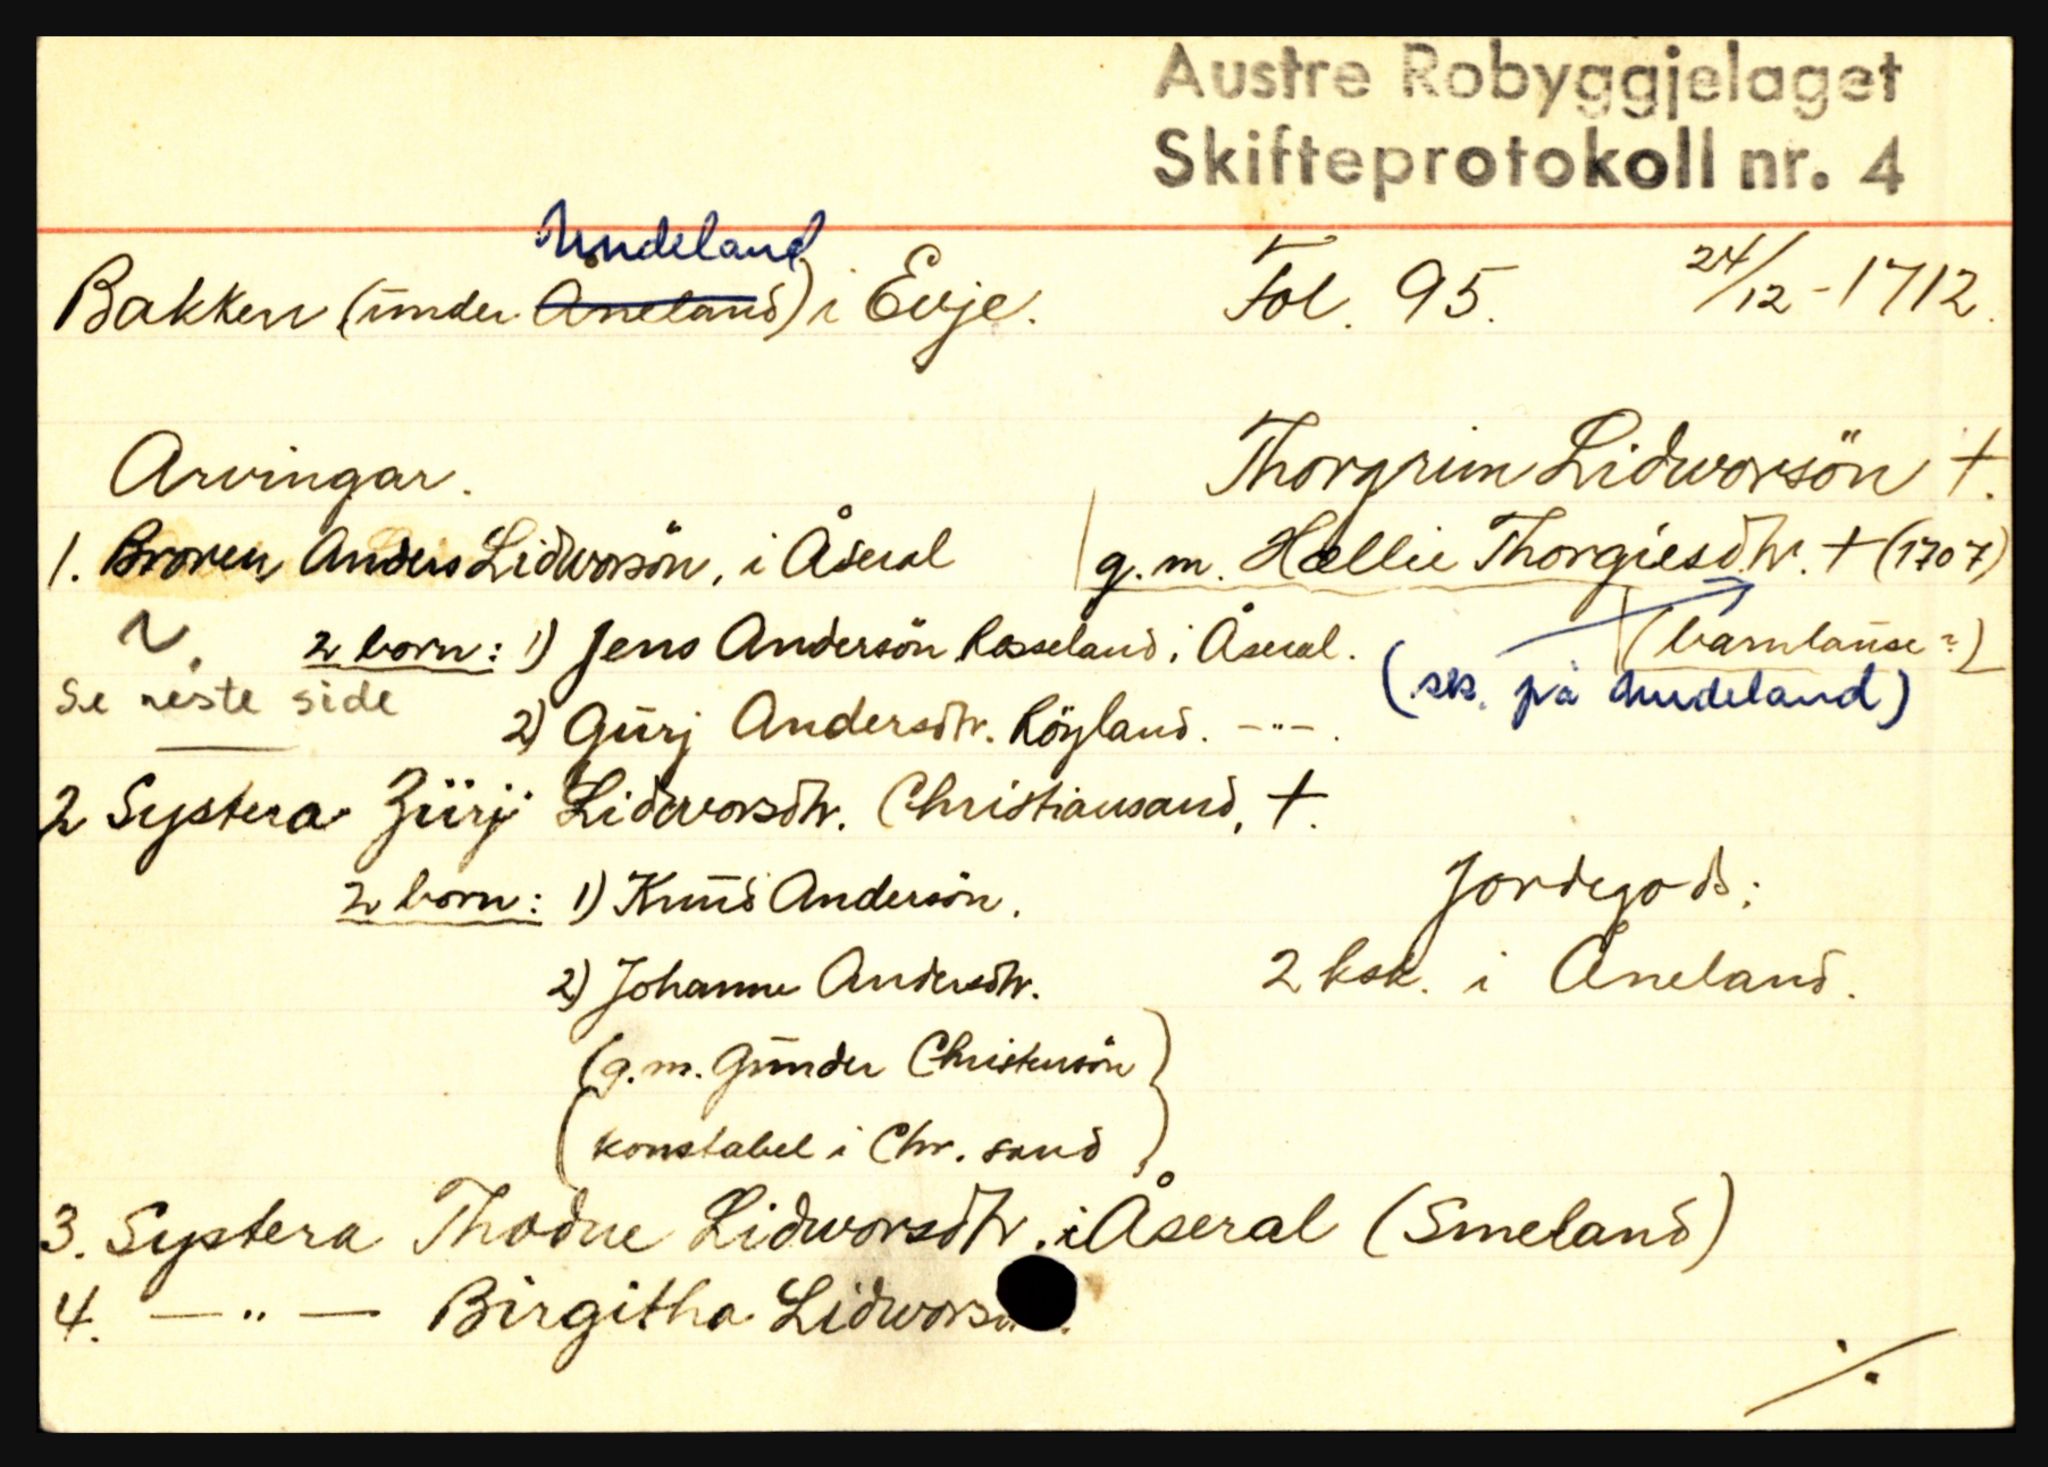 Austre Robyggjelaget
Skifteprotokoll nr. 4
Undeland
Bakken (under Åneland) i Evje. Fol. 95. 24/12-1712.
Arvingar. Thorgrim Lidworsön +.
1. Broren Anders Lidworsön, i Åseral g.m. Hællie Thorgiesdtr. + (1707)
2 born: 1) Jens Andersön Rosseland i Åseral. (barnlause?)
Se neste side (sk. på Undeland)
2) Gurj Andersdtr. Röyland. -"-.
2 Systera Zürj Lidworsdtr. Christiansand, +.
2 born: 1) Knud Andersön. Jordegods:
2) Johanne Andersdtr. 2 ksk. i Åneland.
(g.m. Gunder Christensön)
(konstabel i Chr. sand)
3. Systera Thodne Lidworsdtr. i Åseral (Smeland)
4. -"- Birgitha
./.